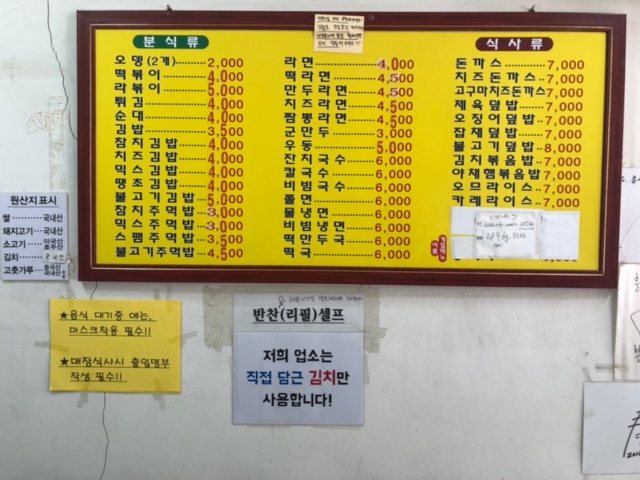 분식류
오뎅(2개)..........2,000
떡볶이..............4,000
라볶이..............5,000
튀김.................4,000
순대.................4,000
김밥.................3,500
참치김밥...........4,000
치즈김밥...........4,000
믹스김밥...........4,000
땡초김밥...........4,000
불고기김밥........5,000
참치주먹밥........3,000
믹스주먹밥........3,000
스팸주먹밥........3,500
불고기주먹밥.....4,500
라면.................4,000
떡라면..............4,500
만두라면...........4,500
치즈라면...........4,500
짬뽕라면...........4,500
군만두..............3,000
우동.................5,000
잔치국수...........6,000
칼국수..............6,000
비빔국수...........6,000
쫄면.................6,000
물냉면..............6,000
비빔냉면...........6,000
떡만두국...........6,000
떡국.................6,000
식사류
돈까스..............7,000
치즈돈까스........7,000
고구마치즈돈까스7,000
제육덮밥...........7,000
오징어덮밥........7,000
잡채덮밥...........7,000
불고기덮밥........8,000
김치볶음밥........7,000
야채햄볶음밥.....7,000
오므라이스........7,000
카레라이스........7,000
원산지표시
쌀..........국내산
돼지고기...국내산
소고기
김치
고춧가루
★음식 대기중 에는,
마스크착용 필수!!
★매장식사시 출입명부
작성 필수!!
반찬(리필)셀프
저희 업소는
직접 담근 김치만
사용합니다!